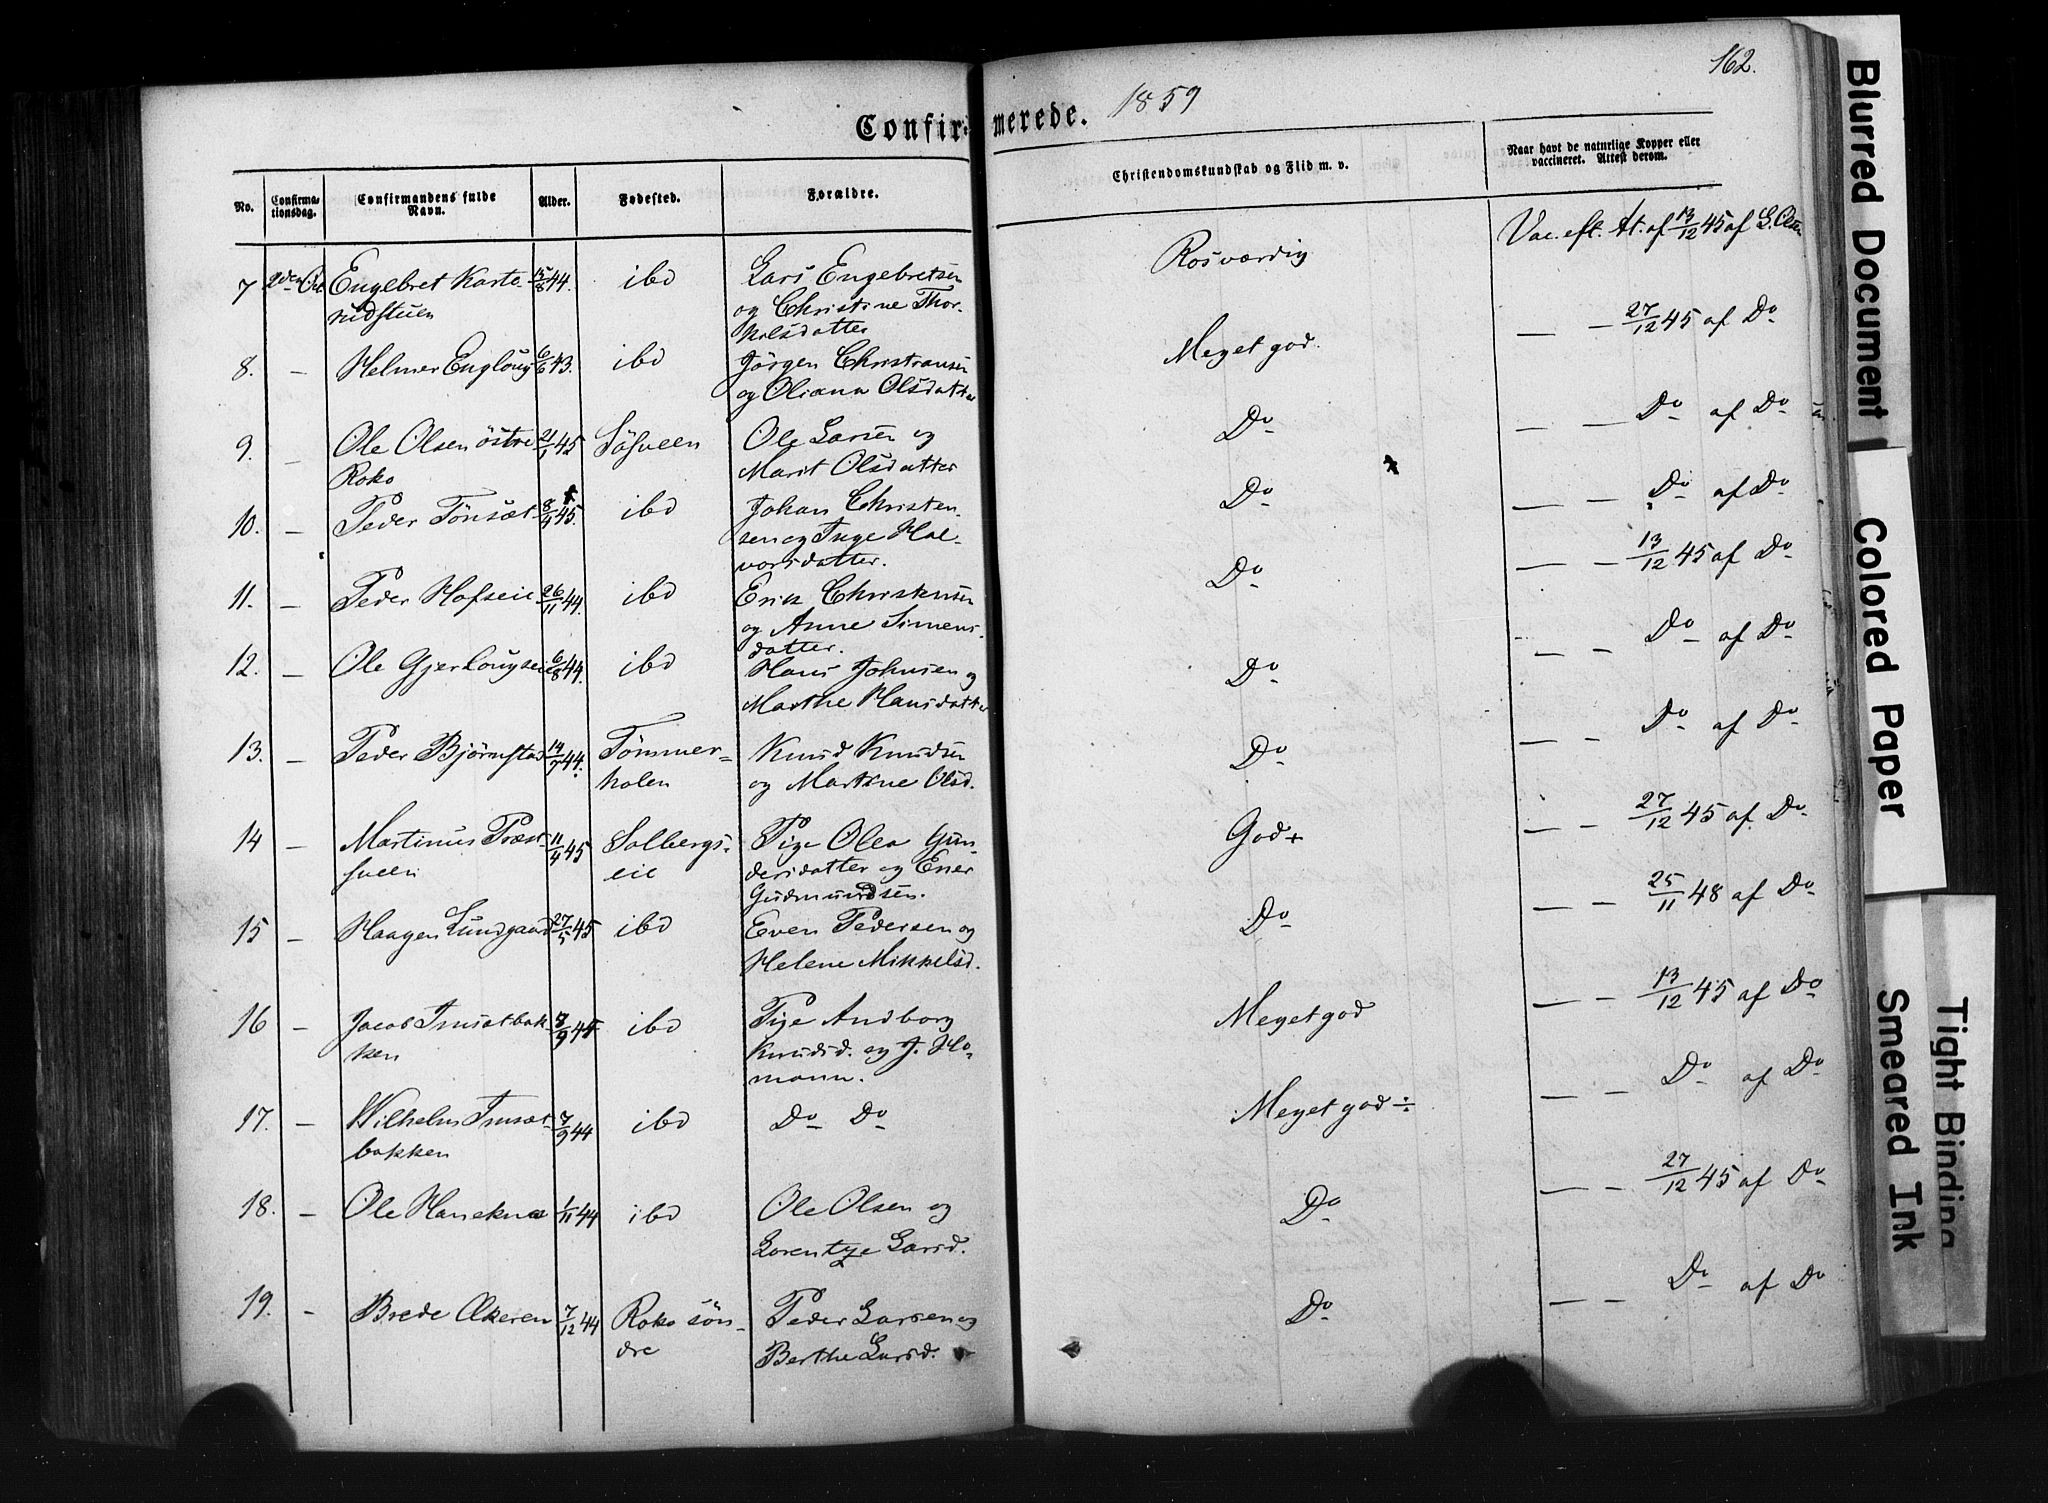 162.
Confirmerede. 1859
No.
Confirmationsdag.
Confirmandens fulde Navn.
Alder.
Fødested.
Forældre.
Christendomskundskab og Flid m. v.
Naar havt de naturlige Kopper eller vaccineret. Attest derom.
7 2den Oct Engebret Karte- 15/8 44. ibd Lars Engebretsen Rosværdig Vac. eft. At. af 13/12 45 af G. Olsen
rudstuen og Christine Thor-
kelsdatter
8. — Helmer Engloug 6/6 43. ibd Jörgen Christiansen Meget god. — — 27/12 45 af Do
og Oliana Olsdatter
9. — Ole Olsen östre 21/1 45 Söfveen Ole Larsen og Do — — Do af Do
Roko Marit Olsdatter
10. — Peder Tönsæt 8/4 45. ibd Johan Christen- Do — — Do af Do
sen og Inge Hal-
vorsdatter.
11. — Peder Hofseie 26/11 44. ibd Erik Christensen Do — — 13/12 45 af Do
og Anne Simens-
datter.
12. — Ole Gjerlougseie 6/8 44. ibd Hans Johnsen og Do — — Do af Do
Marthe Hansdatter
13. — Peder Björnstad 14/7 44. Tömmer- Knud Knudsen Do — — Do af Do
holen og Martine Olsd.
14 — Martinus Præst- 11/4 45 Solbergs- Pige Olea Gun- God+ — — 27/12 45 af Do
sveen eie dersdatter og Ener
Gudmundsen.
15 — Haagen Lundgaard 27/5 45 ibd Even Pedersen og Do — — 25/11 48 af Do
Helene Mikkelsd.
16 — Jacob Trusætbak- 7/9 44 ibd Pige Andborg Meget god — — 13/12 45 af Do
ken Knudsd. og J. Ho-
mann.
17. — Wilhelm Trusæt- 7/9 44 ibd Do Do Meget god ÷ — — Do af Do
bakken
18. — Ole Haneknæ 1/11 44 ibd Ole Olsen og Do — — 27/12 45 af Do
Lorentze Larsd.
19. — Brede Akeren 7/12 44 Roko sön- Peder Larsen og Do — — Do af Do
dre Berthe Larsd.
Blurred Document
Colored Paper
Tight Binding
Smeared Ink